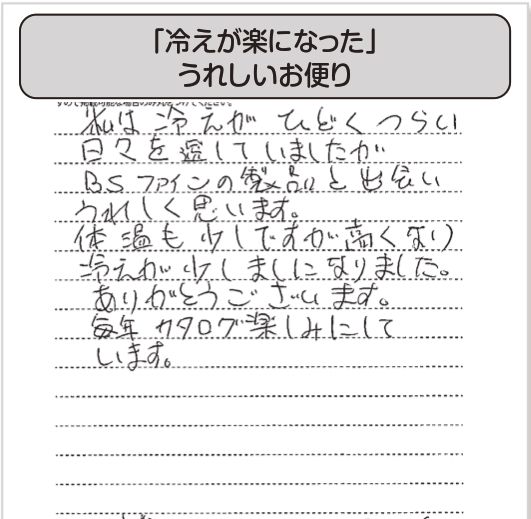 「冷えが楽になった」
うれしいお便り
私は冷えがひどくつらい
日々を過していましたが
BSファインの製品と出会い
うれしく思います。
体温も少しですが高くなり
冷えが少しましになりました。
ありがとうございます。
毎年カタログ楽しみにして
います。